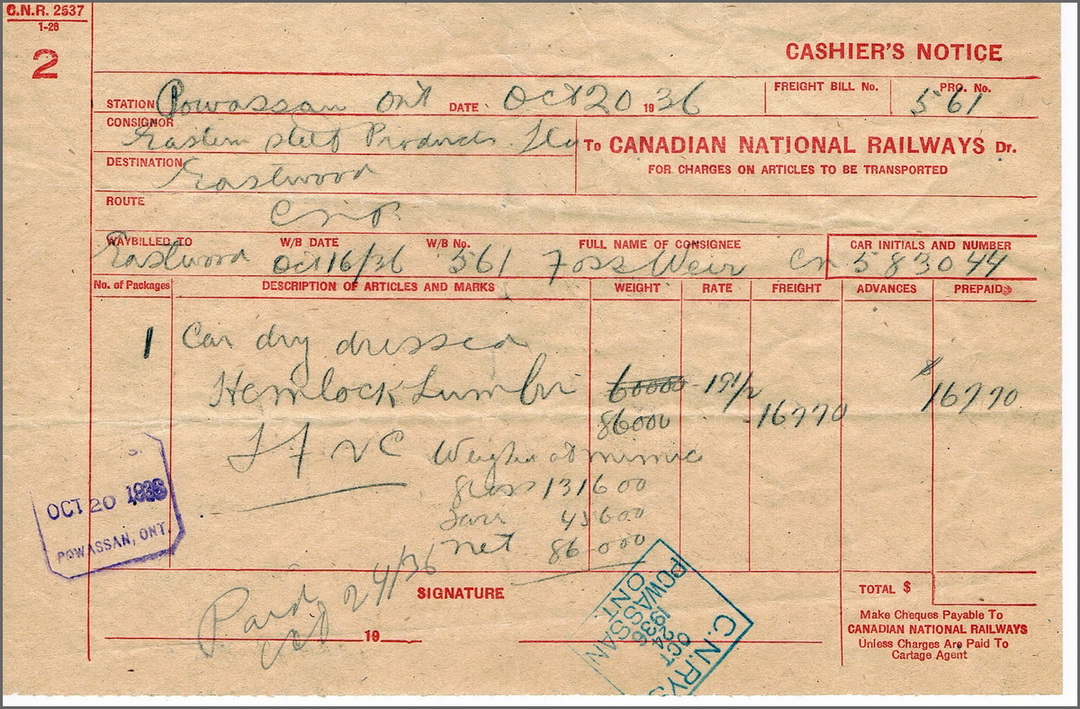 C.N.R. 2537
1-26
2
CASHIER'S NOTICE
STATION Powassan Ont DATE Oct 20 1936 FREIGHT BILL No. PRO. No. 561
CONSIGNOR Eastern Steel Products
To CANADIAN NATIONAL RAILWAYS Dr.
FOR CHARGES ON ARTICLES TO BE TRANSPORTED
DESTINATION Eastwood
ROUTE CNR
WAYBILLED TO W/B DATE W/B No. FULL NAME OF CONSIGNEE CAR INITIALS AND NUMBER
Eastwood Oct 16/36 561 Foss Weir Cn 583044
No. of Packages DESCRIPTION OF ARTICLES AND MARKS WEIGHT RATE FREIGHT ADVANCES PREPAID
1 Car dry dressed
Hemlock Lumber 60000 19 1/2 $
86000 16770 16770
Weighed at mimico
Gross 131600
Tare 45600
net 86000
OCT 20 1936
POWASSAN, ONT.
Paid 24/36
SIGNATURE
19
C.N.RYS
OCT 24
1936
POWASSAN
ONT
TOTAL $
Make Cheques Payable To
CANADIAN NATIONAL RAILWAYS
Unless Charges Are Paid To
Cartage Agent